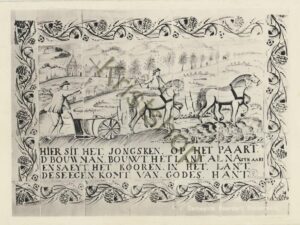 HIER SIT HET JONGSKEN. OP HET PAART
D BOUWNAN. BOUWT HET LANT AL NA SYN AART
EN SAEYT HET KOOREN. IN HET LANT
DE SEEGEN KOMT VAN GODES HANT.